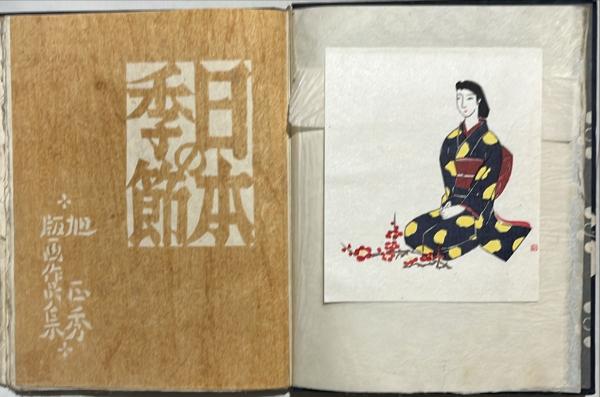 日本の
季節
旭 正秀
版画作品集